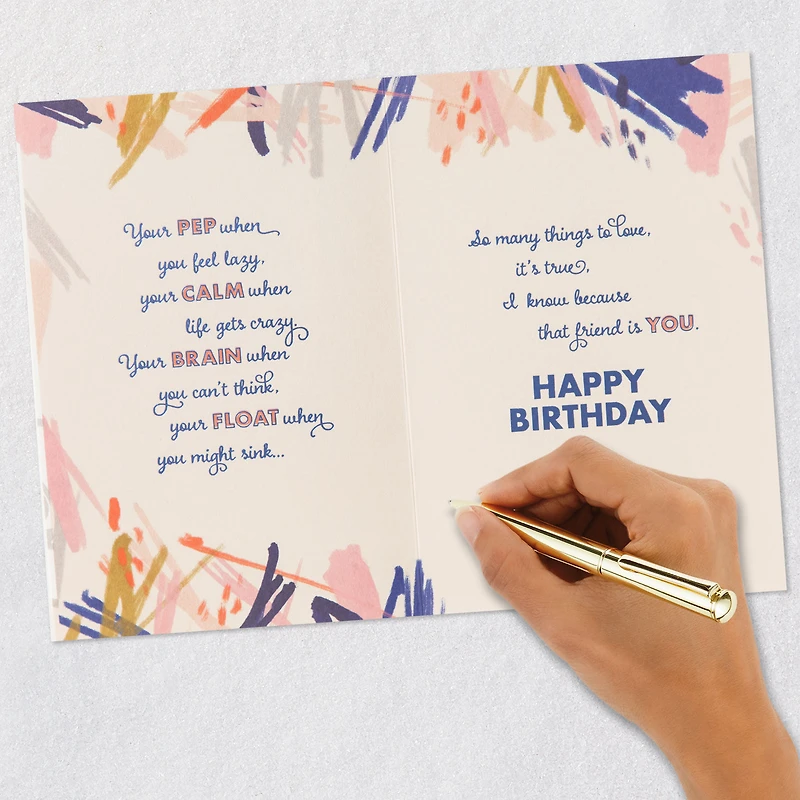 Your PEP when
you feel lazy,
your CALM when
life gets crazy.
Your BRAIN when
you can't think,
your FLOAT when
you might sink...
So many things to love,
it's true,
I know because
that friend is YOU.
HAPPY
BIRTHDAY